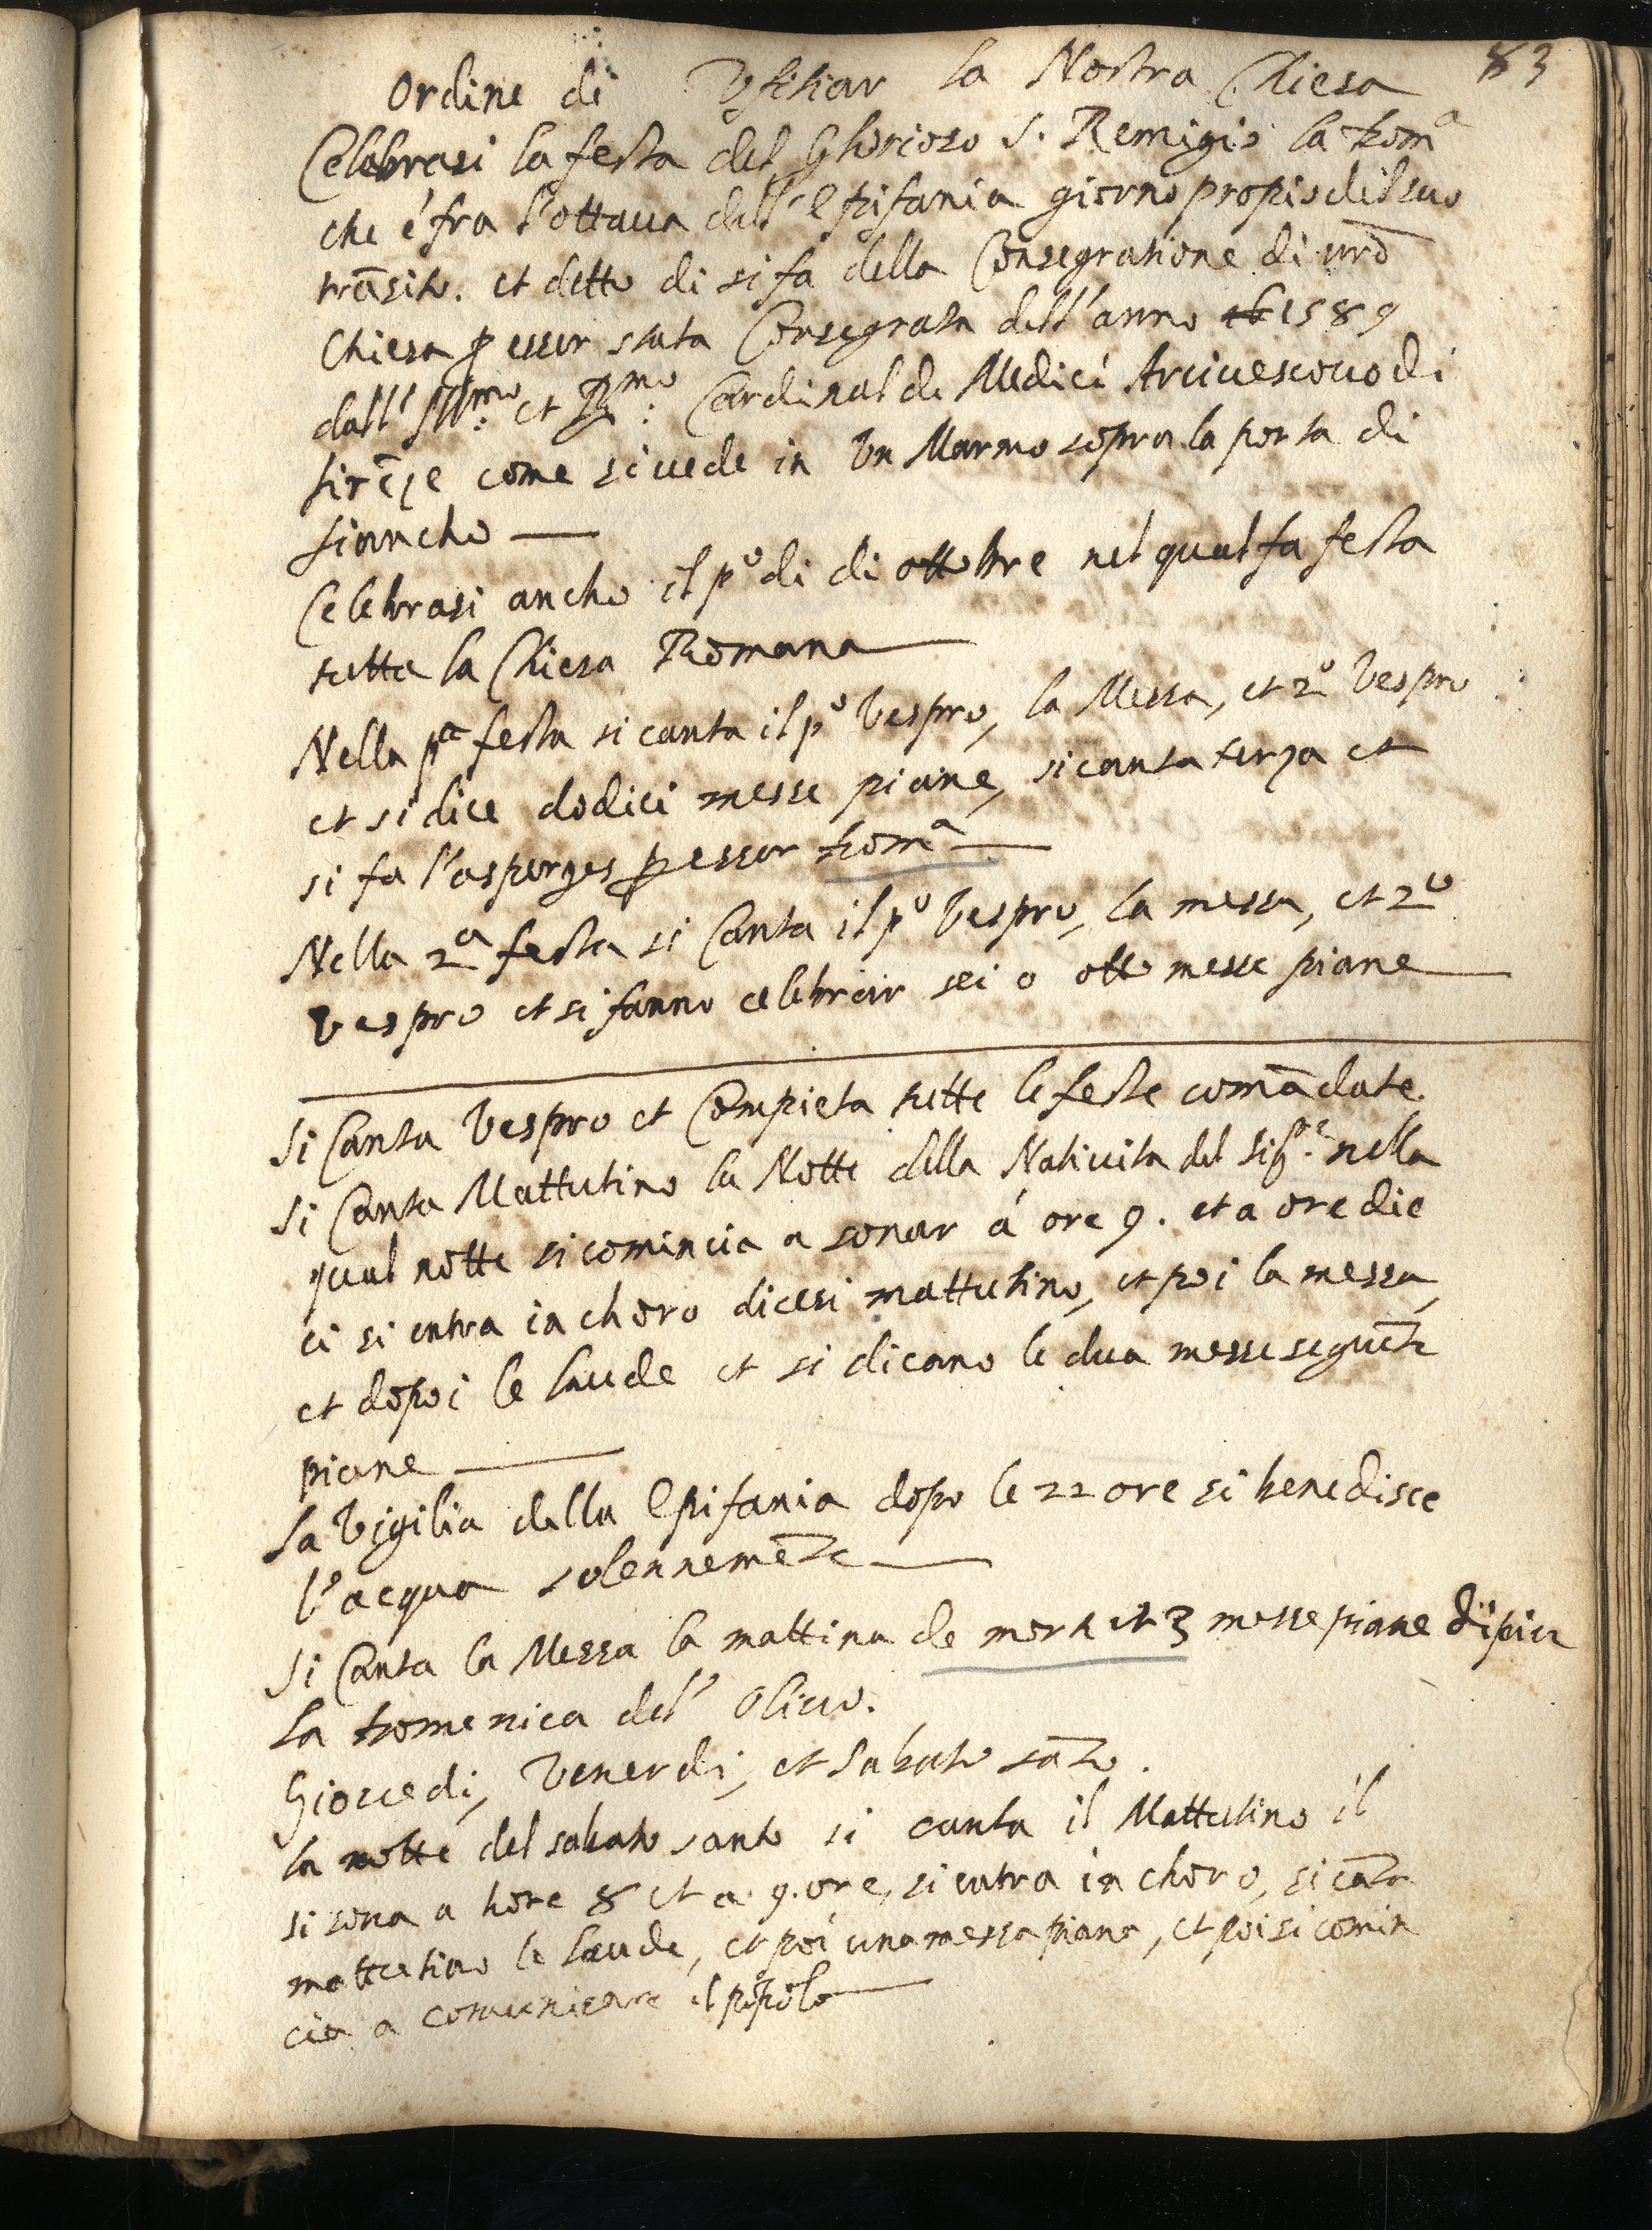 83
Ordine di Vfitiar la Nostra Chiesa
Celebrasi la festa del Ghorioso S. Remigio la Dom.ª
che é fra l'ottaua dell'Epifania giorno propio del suo
trāsito. et detto di si fa della Consegratione di nrā
Chiesa ꝑ esser stata Consegrata dell'anno 1589
dall' Ill.mo et R.mo Cardinal de Medici Arciuescouo di
firēze come si uede in Vn Marmo sopra la porta di
fiancho —
Celebrasi ancho il pº di di ottobre nel qual fa festa
tutta la Chiesa Romana —
Nella pª festa si canta il pº Vespro, la Messa, et 2º Vespro
et si dice dodici messe piane, si canta terza et
si fa l'asperges ꝑ esser Domª —
Nella 2ª festa si Canta il pº Vespro, la messa, et 2º
Vespro et si fanno celebrar sei o otto messe piane —
Si Canta Vespro et Compieta tutte le feste comādate.
Si Canta Mattutino la Notte della Natiuita del Sig.re nella
qual notte si comincia a sonar á ore 9. et a ore die
ci si entra in choro dicesi mattutino, et poi la messa,
et dopoi le laude et si dicano le dua messe seguēte
piane —
La Vigilia della Epifania dopo le 22 ore si benedisce
l'acqua solennemēte —
Si Canta la Messa la mattina de morti et 3 messe piane di piu
La Domenica del' Oliuo.
Giouedi, Venerdi, et Sabato sāto.
la notte del sabato santo si canta il Mattutino il
si sona a hore 8 et a 9. ore, si entra in choro, si cāta
mattutino le laude, et poi una messa piana, et poi si comin
cia a comunicare il popolo —